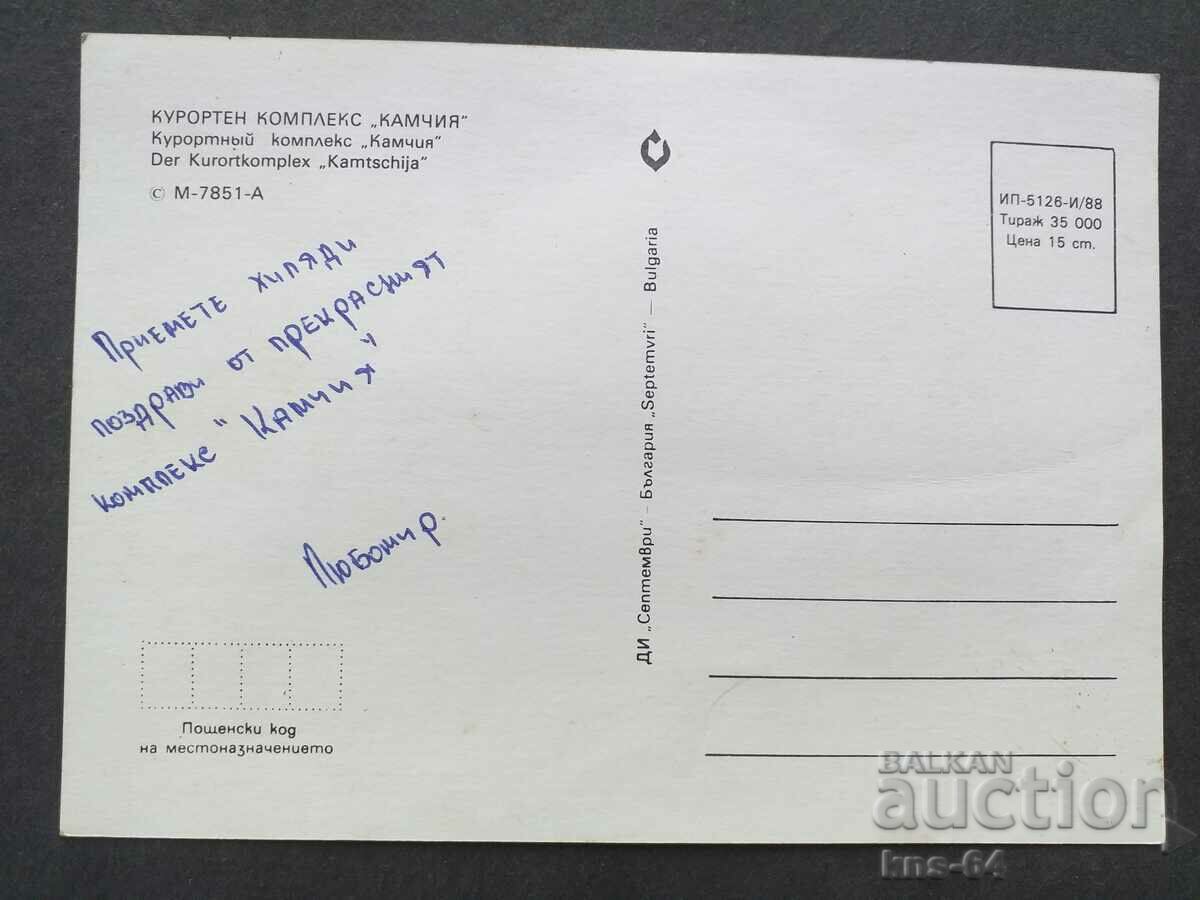 КУРОРТЕН КОМПЛЕКС „КАМЧИЯ"
Курортный комплекс „Камчия"
Der Kurortkomplex „Kamtschija"
© М-7851-А
Приемете хиляди
поздрави от прекрасният
комплекс "Камчия"
Любомир.
Пощенски код
на местоназначението
ДИ „Септември" — България „Septemvri" — Bulgaria
ИП-5126-И/88
Тираж 35 000
Цена 15 ст.
BALKAN
auction
kns-64